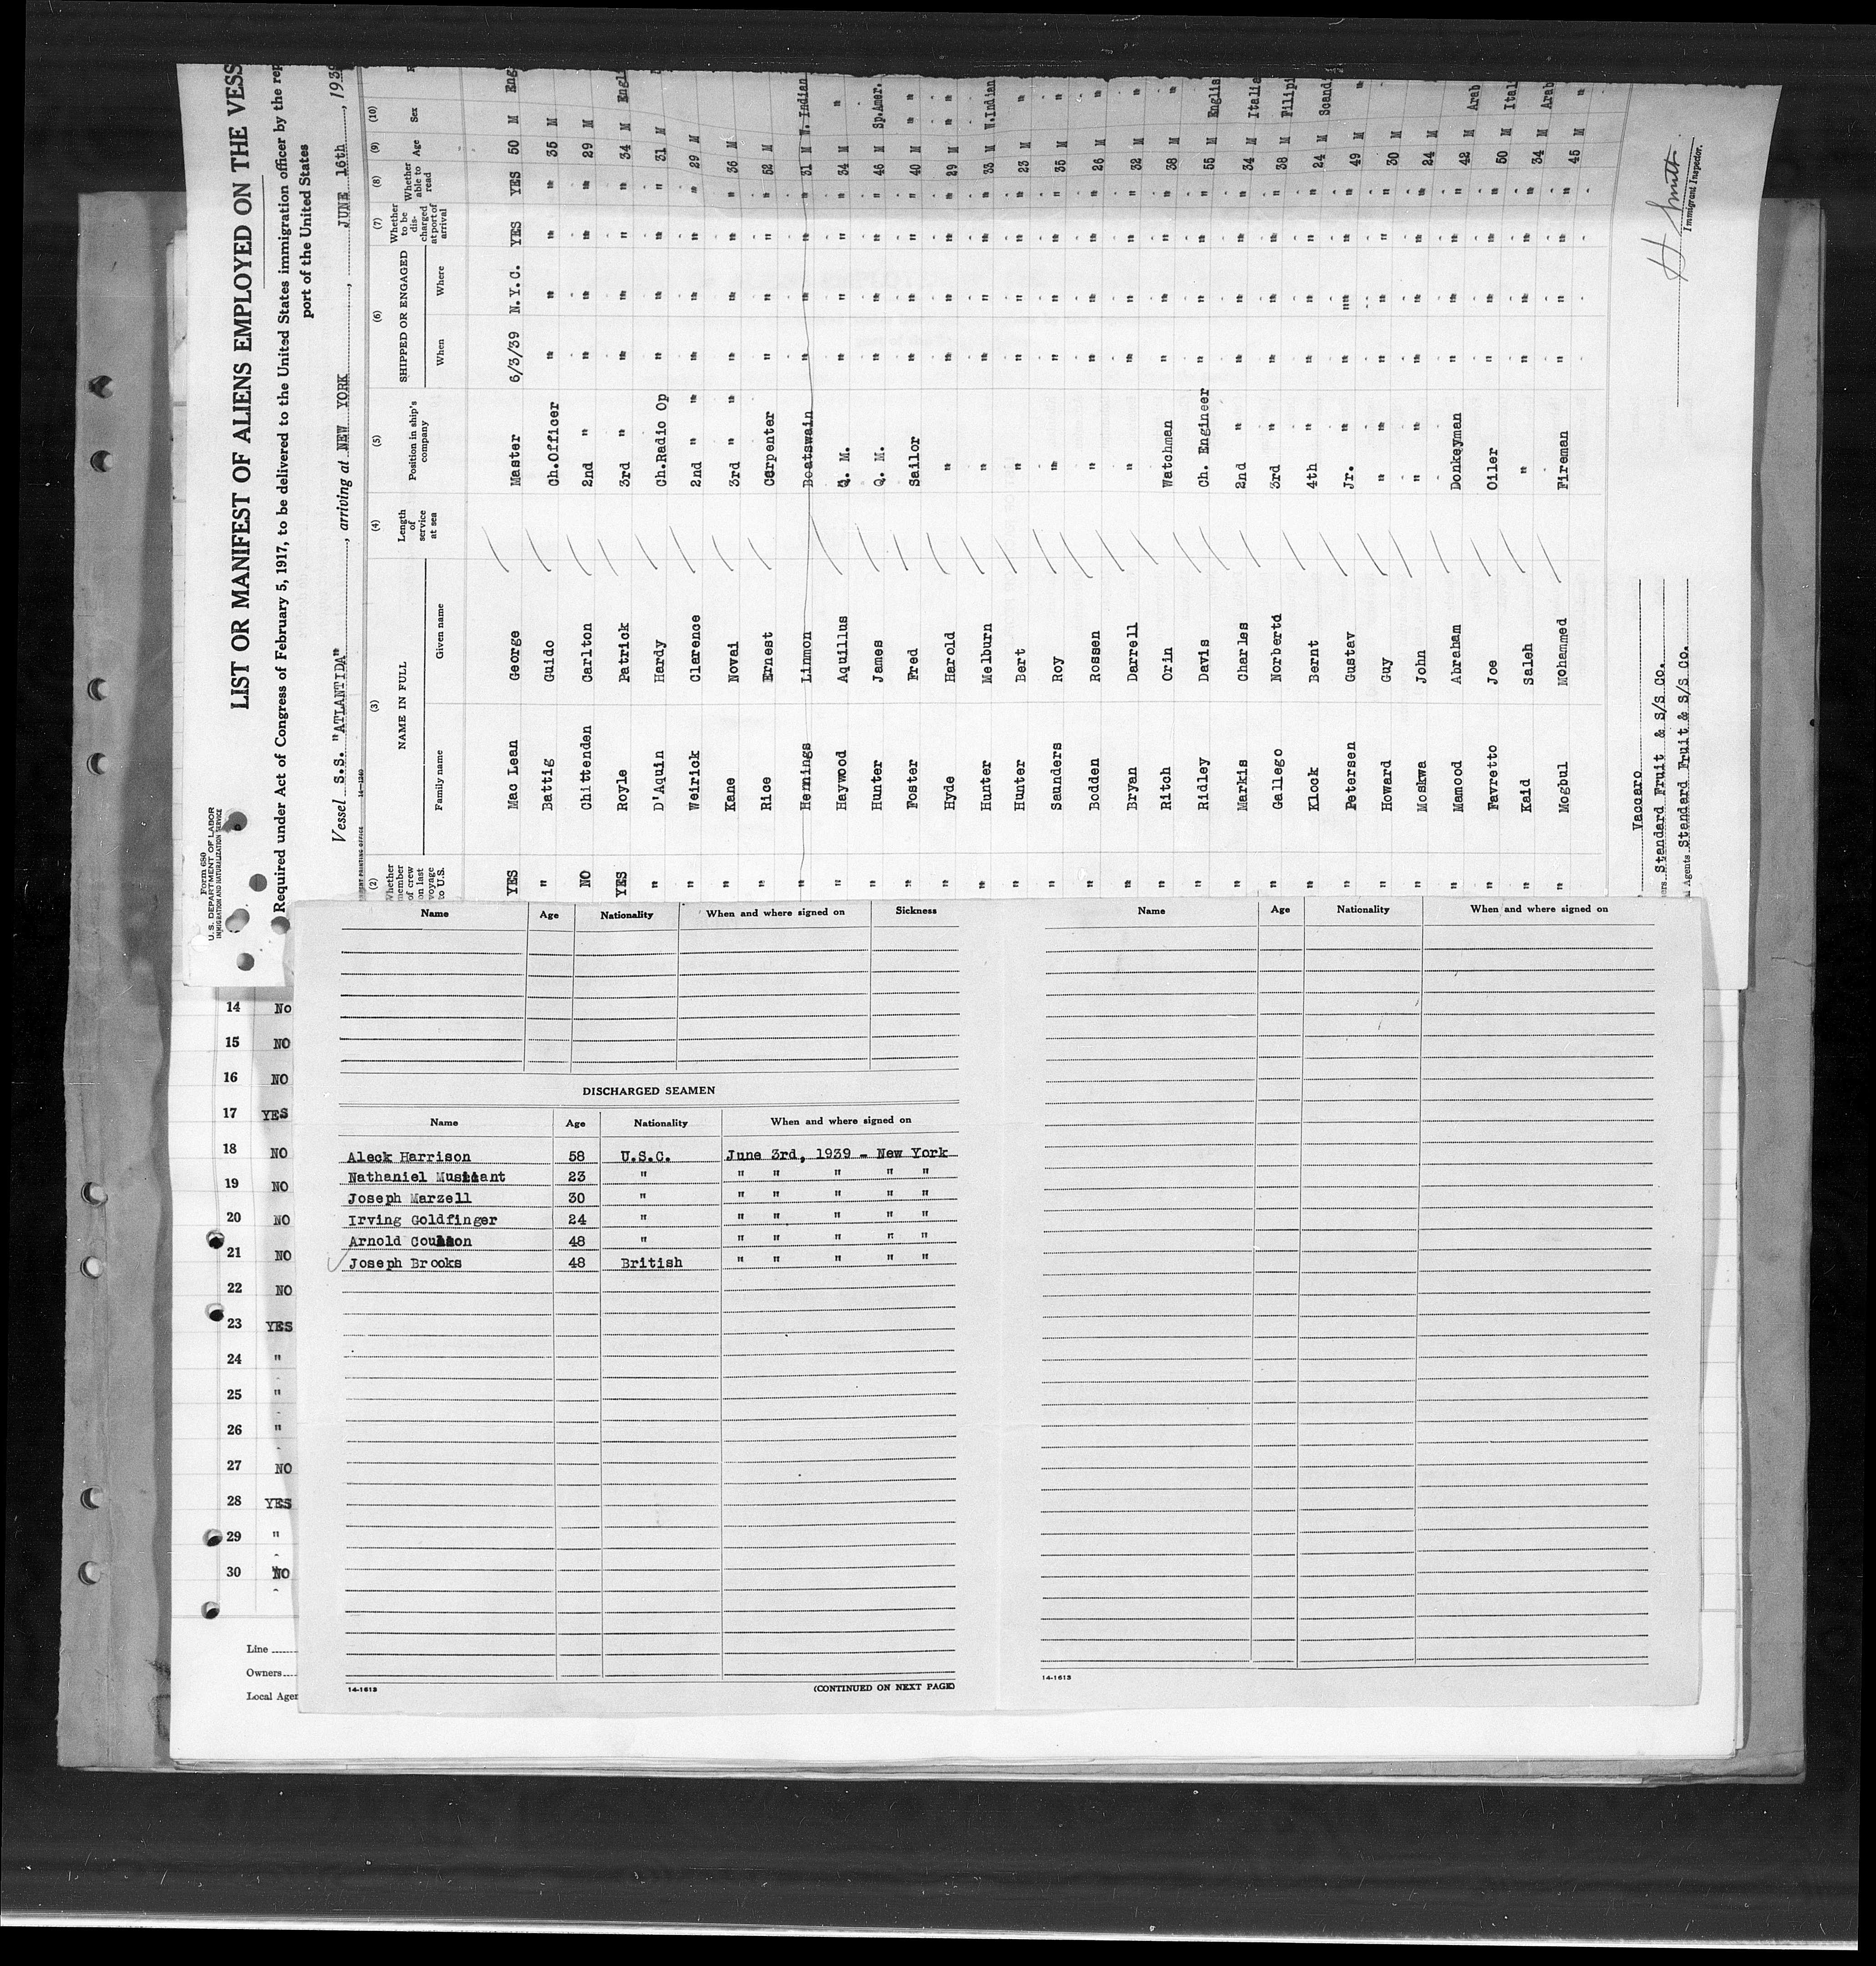 Form 680
U. S. DEPARTMENT OF LABOR
IMMIGRATION AND NATURALIZATION SERVICE
LIST OR MANIFEST OF ALIENS EMPLOYED ON THE VESS
Required under Act of Congress of February 5, 1917, to be delivered to the United States immigration officer by the rep
port of the United States
Vessel S.S. "ATLANTIDA", arriving at NEW YORK, JUNE 16th, 193
14-1240
(2) (3) (4) (5) (6) (7) (8) (9) (10)
Whether member of crew on last voyage to U.S. NAME IN FULL Family name Given name Length of service at sea Position in ship's company SHIPPED OR ENGAGED When Where Whether to be discharged at port of arrival Whether able to read Age Sex
YES Mac Lean George Master 6/3/39 N.Y.C. YES YES 50 M Eng
" Battig Guido Ch.Officer " " " " 35 M
NO Chittenden Carlton 2nd " " " " " 29 M
YES Royle Patrick 3rd " " " " " 34 M Engl
" D'Aquin Hardy Ch.Radio Op " " " " 31 M
" Weirick Clarence 2nd " " " " " " 29 M
" Kane Novai 3rd " " " " " " 36 M
" Rice Ernest Carpenter " " " " 52 M
" Hennings Linmon Boatswain " " " " 31 M W. Indian
" Haywood Aquillus Q. M. " " " " 34 M "
" Hunter James Q. M. " " " " 46 M Sp.Amer.
" Foster Fred Sailor " " " " 40 M "
" Hyde Harold " " " " " 29 M "
" Hunter Melburn " " " " " 33 M W.Indian
" Hunter Bert " " " " " 23 M "
" Saunders Roy " " " " " 35 M "
" Bodden Rossen " " " " " 26 M "
" Bryan Darrell " " " " " 32 M "
" Ritch Orin Watchman " " " " 38 M "
" Ridley Davis Ch. Engineer " " " " 55 M Englis
" Markis Charles 2nd " " " " " 34 M Italia
" Gallego Norberto 3rd " " " " " 38 M Filipi
" Klock Bernt 4th " " " " " 24 M Scandi
" Petersen Gustav Jr. " " " " " 49 M "
" Howard Guy " " " " " " 30 M
" Moskwa John " " " " " " 24 M
" Mamood Abraham Donkeyman " " " " 42 M Arab
" Favretto Joe Oiler " " " " 50 M Ital
" Kaid Saleh " " " " " 34 M Arab
" Mogbul Mohammed Fireman " " " " 45 M "
Vaccaro
ers Standard Fruit & S/S Co.
l Agents Standard Fruit & S/S Co.
H Smith
Immigrant Inspector.
14 No
15 NO
16 NO
17 YES
18 NO
19 NO
20 NO
21 NO
22 NO
23 YES
24 "
25 "
26 "
27 NO
28 YES
29 "
30 NO
Line
Owners
Local Agen
Name Age Nationality When and where signed on Sickness
DISCHARGED SEAMEN
Name Age Nationality When and where signed on
Aleck Harrison 58 U.S.C. June 3rd, 1939 - New York
Nathaniel Musicant 23 " " " " " "
Joseph Marzell 30 " " " " " "
Irving Goldfinger 24 " " " " " "
Arnold 48 " " " " " "
Joseph Brooks 48 British " " " " "
14-1613
(CONTINUED ON NEXT PAGE)
Name Age Nationality When and where signed on
14-1613